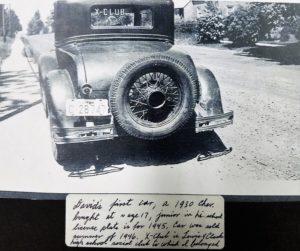 X-CLUB
David's first car, a 1930 Chev.
bought at age 17, junior in hi school
license plate is for 1945. Car was sold
summer of 1946. X-Club is Lewis & Clark
high school social club to which I belonged